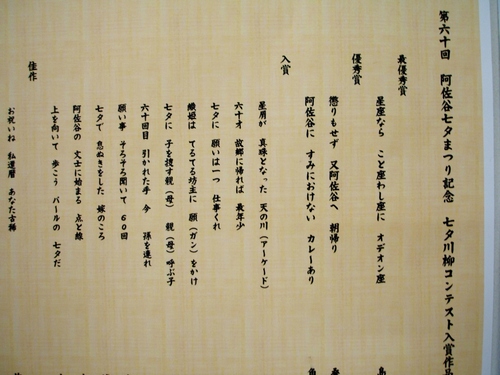 第六十回 阿佐谷七夕まつり記念 七夕川柳コンテスト入賞作品
最優秀賞
星座なら こと座わし座に オデオン座
優秀賞
懲りもせず 又阿佐谷へ 朝帰り
阿佐谷に すみにおけない カレーあり
入賞
星屑が 真珠となった 天の川(アーケード)
六十才 故郷に帰れば 最年少
七夕に 願いは一つ 仕事くれ
織姫は てるてる坊主に 願(ガン)をかけ
七夕に 子を捜す親(母) 親(母)呼ぶ子
六十回目 引かれた手 今 孫を連れ
願い事 そろそろ聞いて 60回
七夕で 息ぬきをした 嫁のころ
阿佐谷の 文士に始まる 点と線
上を向いて 歩こう パールの 七夕だ
佳作
お祝いね 私還暦 あなた古稀